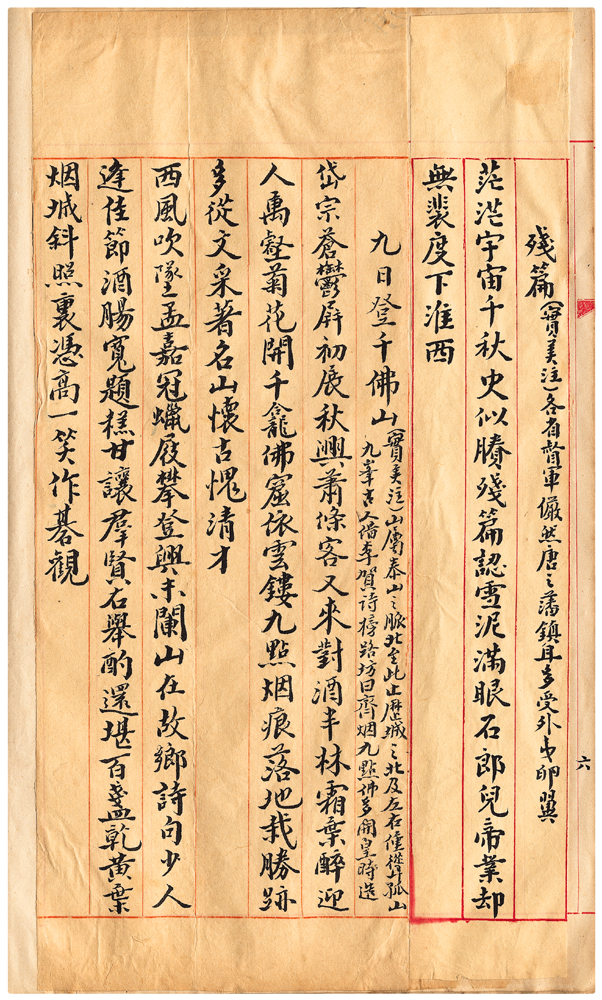 六
殘篇(寶美注)各省督軍儼然唐之藩鎮且多受外夷卵翼
茫茫宇宙千秋史似賸殘篇認雪泥滿眼石郎兒帝業却
無裴度下淮西
九日登千佛山(寶美注)山屬泰山之脈北至此止歷城之北及左右僅聳孤山
九峯古人借李賀詩榜路坊曰齊烟九點佛多開皇時造
岱宗蒼鬱屏初展秋興蕭條客又來對酒半林霜葉醉迎
人萬壑菊花開千龕佛窟依雲鏤九點烟痕落地栽勝跡
多從文采著名山懷古愧清才
西風吹墜孟嘉冠蠟屐攀登興未闌山在故鄉詩句少人
逢佳節酒腸寬題糕甘讓羣賢右舉酌還堪百盞乾黃葉
烟城斜照裏憑高一笑作碁觀